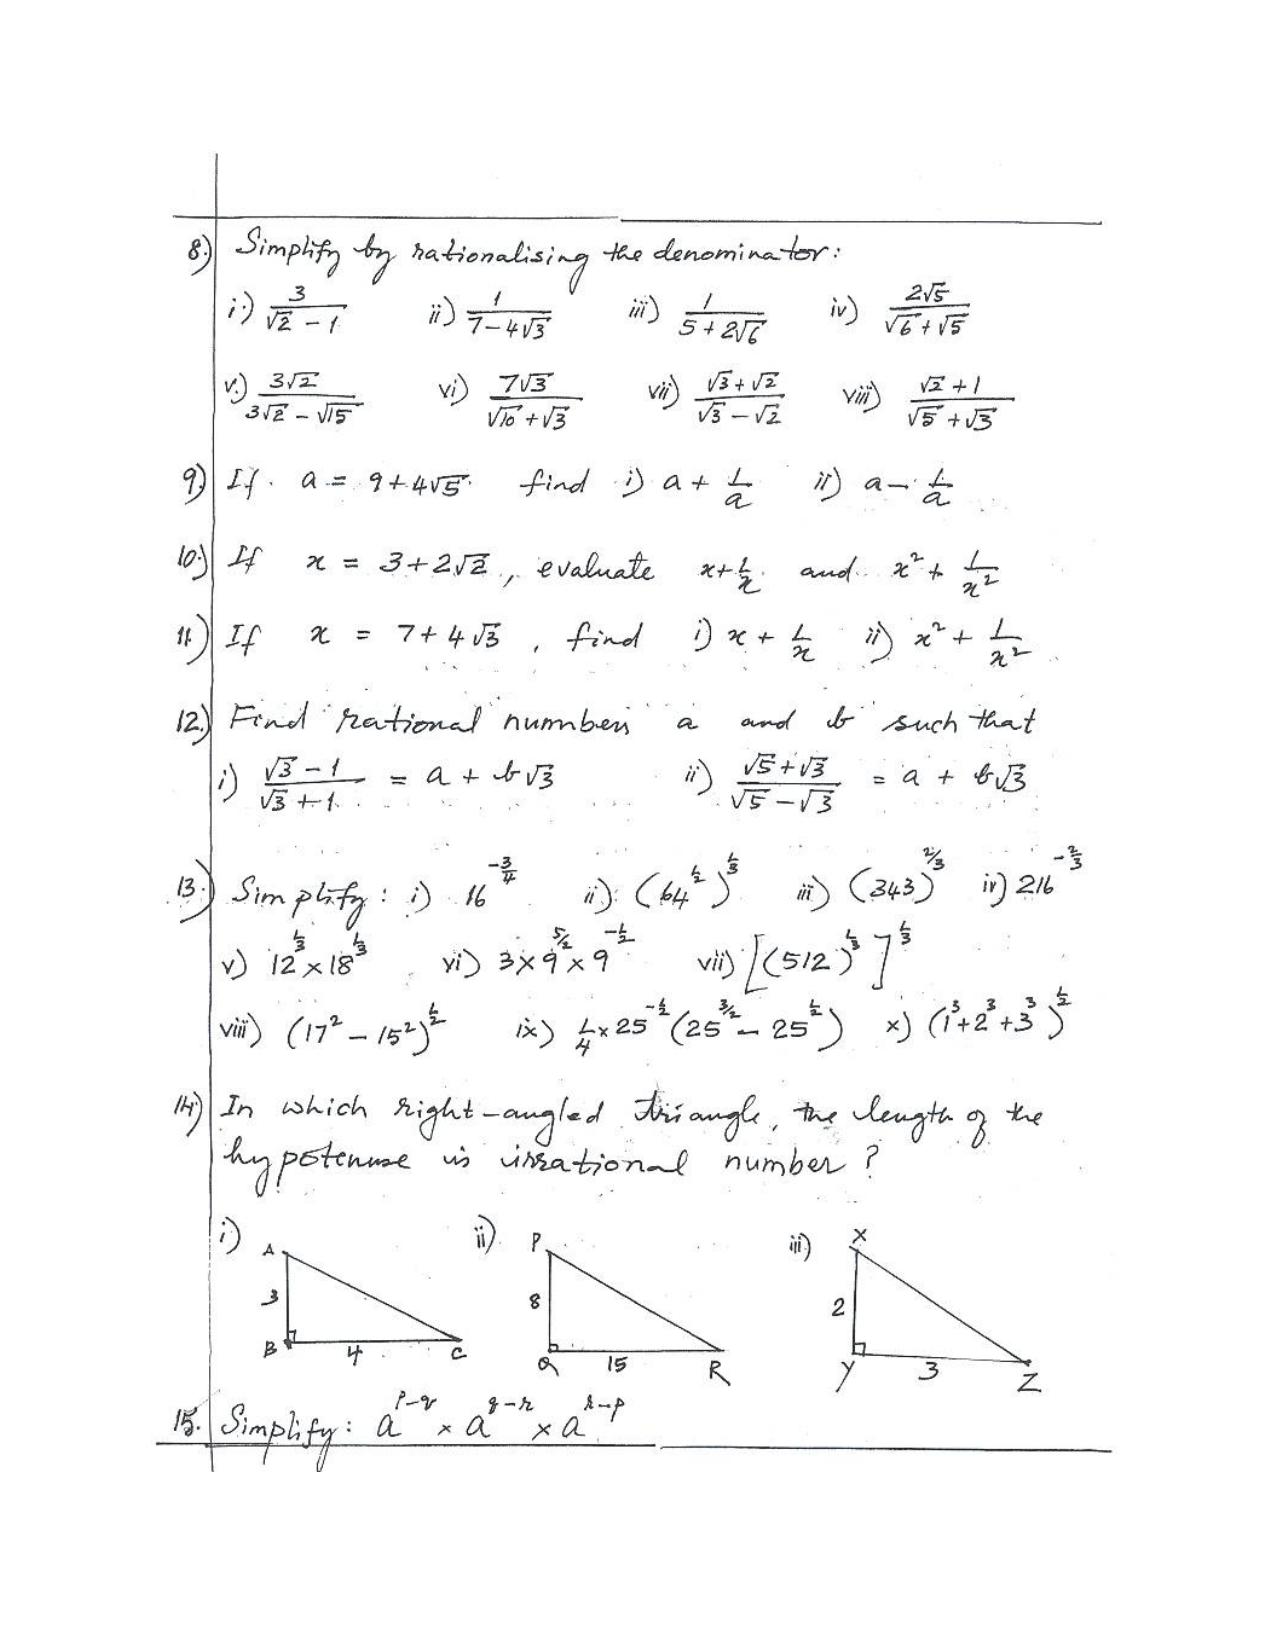 8.) Simplify by rationalising the denominator:
i.) 3/(√2 - 1) ii) 1/(7 - 4√3) iii) 1/(5 + 2√6) iv) 2√5/(√6 + √5)
v.) 3√2/(3√2 - √15) vi) 7√3/(√10 + √3) vii) (√3 + √2)/(√3 - √2) viii) (√2 + 1)/(√5 + √3)
9.) If a = 9 + 4√5 find i) a + 1/a ii) a - 1/a
10.) If x = 3 + 2√2, evaluate x + 1/x and x² + 1/x²
11.) If x = 7 + 4√3, find i) x + 1/x ii) x² + 1/x²
12.) Find rational numbers a and b such that
i) (√3 - 1)/(√3 + 1) = a + b√3 ii) (√5 + √3)/(√5 - √3) = a + b√3
13.) Simplify: i) 16^(-3/4) ii) (64^(1/2))^(1/3) iii) (343)^(2/3) iv) 216^(-2/3)
v) 12^(1/3) × 18^(1/3) vi) 3 × 9^(5/2) × 9^(-1/2) vii) [(512)^(1/3)]^(1/3)
viii) (17² - 15²)^(1/2) ix) 1/4 × 25^(-1/2) (25^(3/2) - 25^(1/2)) x) (1³ + 2³ + 3³)^(1/2)
14) In which right-angled triangle, the length of the
hypotenuse is irrational number?
i) ii) iii)
A P X
3 8 2
B 4 C Q 15 R Y 3 Z
15. Simplify: a^(p-q) × a^(q-r) × a^(r-p)